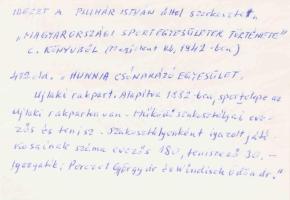 IDÉZET A PLUHÁR ISTVÁN által szerkesztett,
„MAGYARORSZÁGI SPORTEGYESÜLETEK TÖRTÉNETE"
c. KÖNYVBŐL (Megjelent kb. 1942-ben)
412. old. „HUNNIA CSÓNAKÁZÓ EGYESÜLET.
Ujlaki rakpart. Alapítva 1882-ben, sporttelepe az
ujlaki rakparton van. Működő szakosztályai eve-
zős és tenisz. Szakosztályonként igazolt játé-
kosainak száma evezős 180, teniszező 30. -
Igazgatói: Perczel György dr. és Windisch Ödön dr."